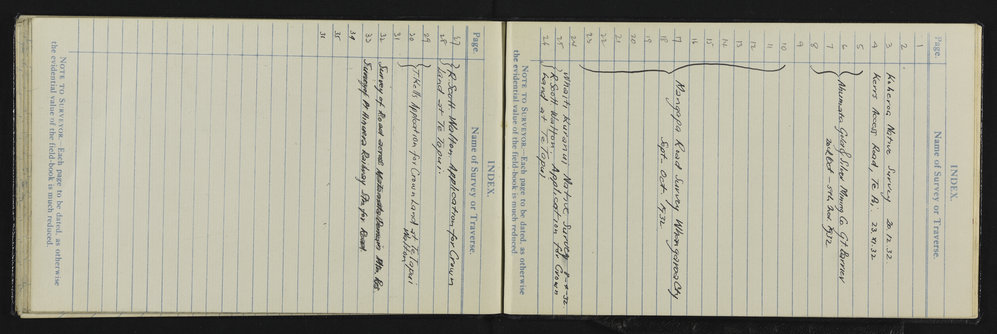 INDEX.
Page. Name of Survey or Traverse.
1
2
3 Koheroa Native Survey 20.12.32
4 Kerrs Access Road, Te Pi. 23.4.32
5
6 Ahumata Gold & Silver Mining Co Gt Barrier
7 2nd Oct - 5th Nov 1932
8
9
10
11
12
13
14
15
16
17 Wangapa Road Survey Whangaroa Cty
18 Sept - Oct 1932
19
20
21
22
23
24 Whaiti Kuranui Native Survey 8-4-32
25 R Scott Walton Application for Crown
26 Land at Te Tapui
NOTE TO SURVEYOR.—Each page to be dated, as otherwise
the evidential value of the field-book is much reduced.
INDEX.
Page. Name of Survey or Traverse.
27 R. Scott Walton Application for Crown
28 Land at Te Tapui
29
30 T Kelly Application for Crown Land at Te Tapui
31 Walton
32 Survey of Road across Matamata Domain
33 Survey of Hinuera Railway Stn for Road
34
35
36
NOTE TO SURVEYOR.—Each page to be dated, as otherwise
the evidential value of the field-book is much reduced.